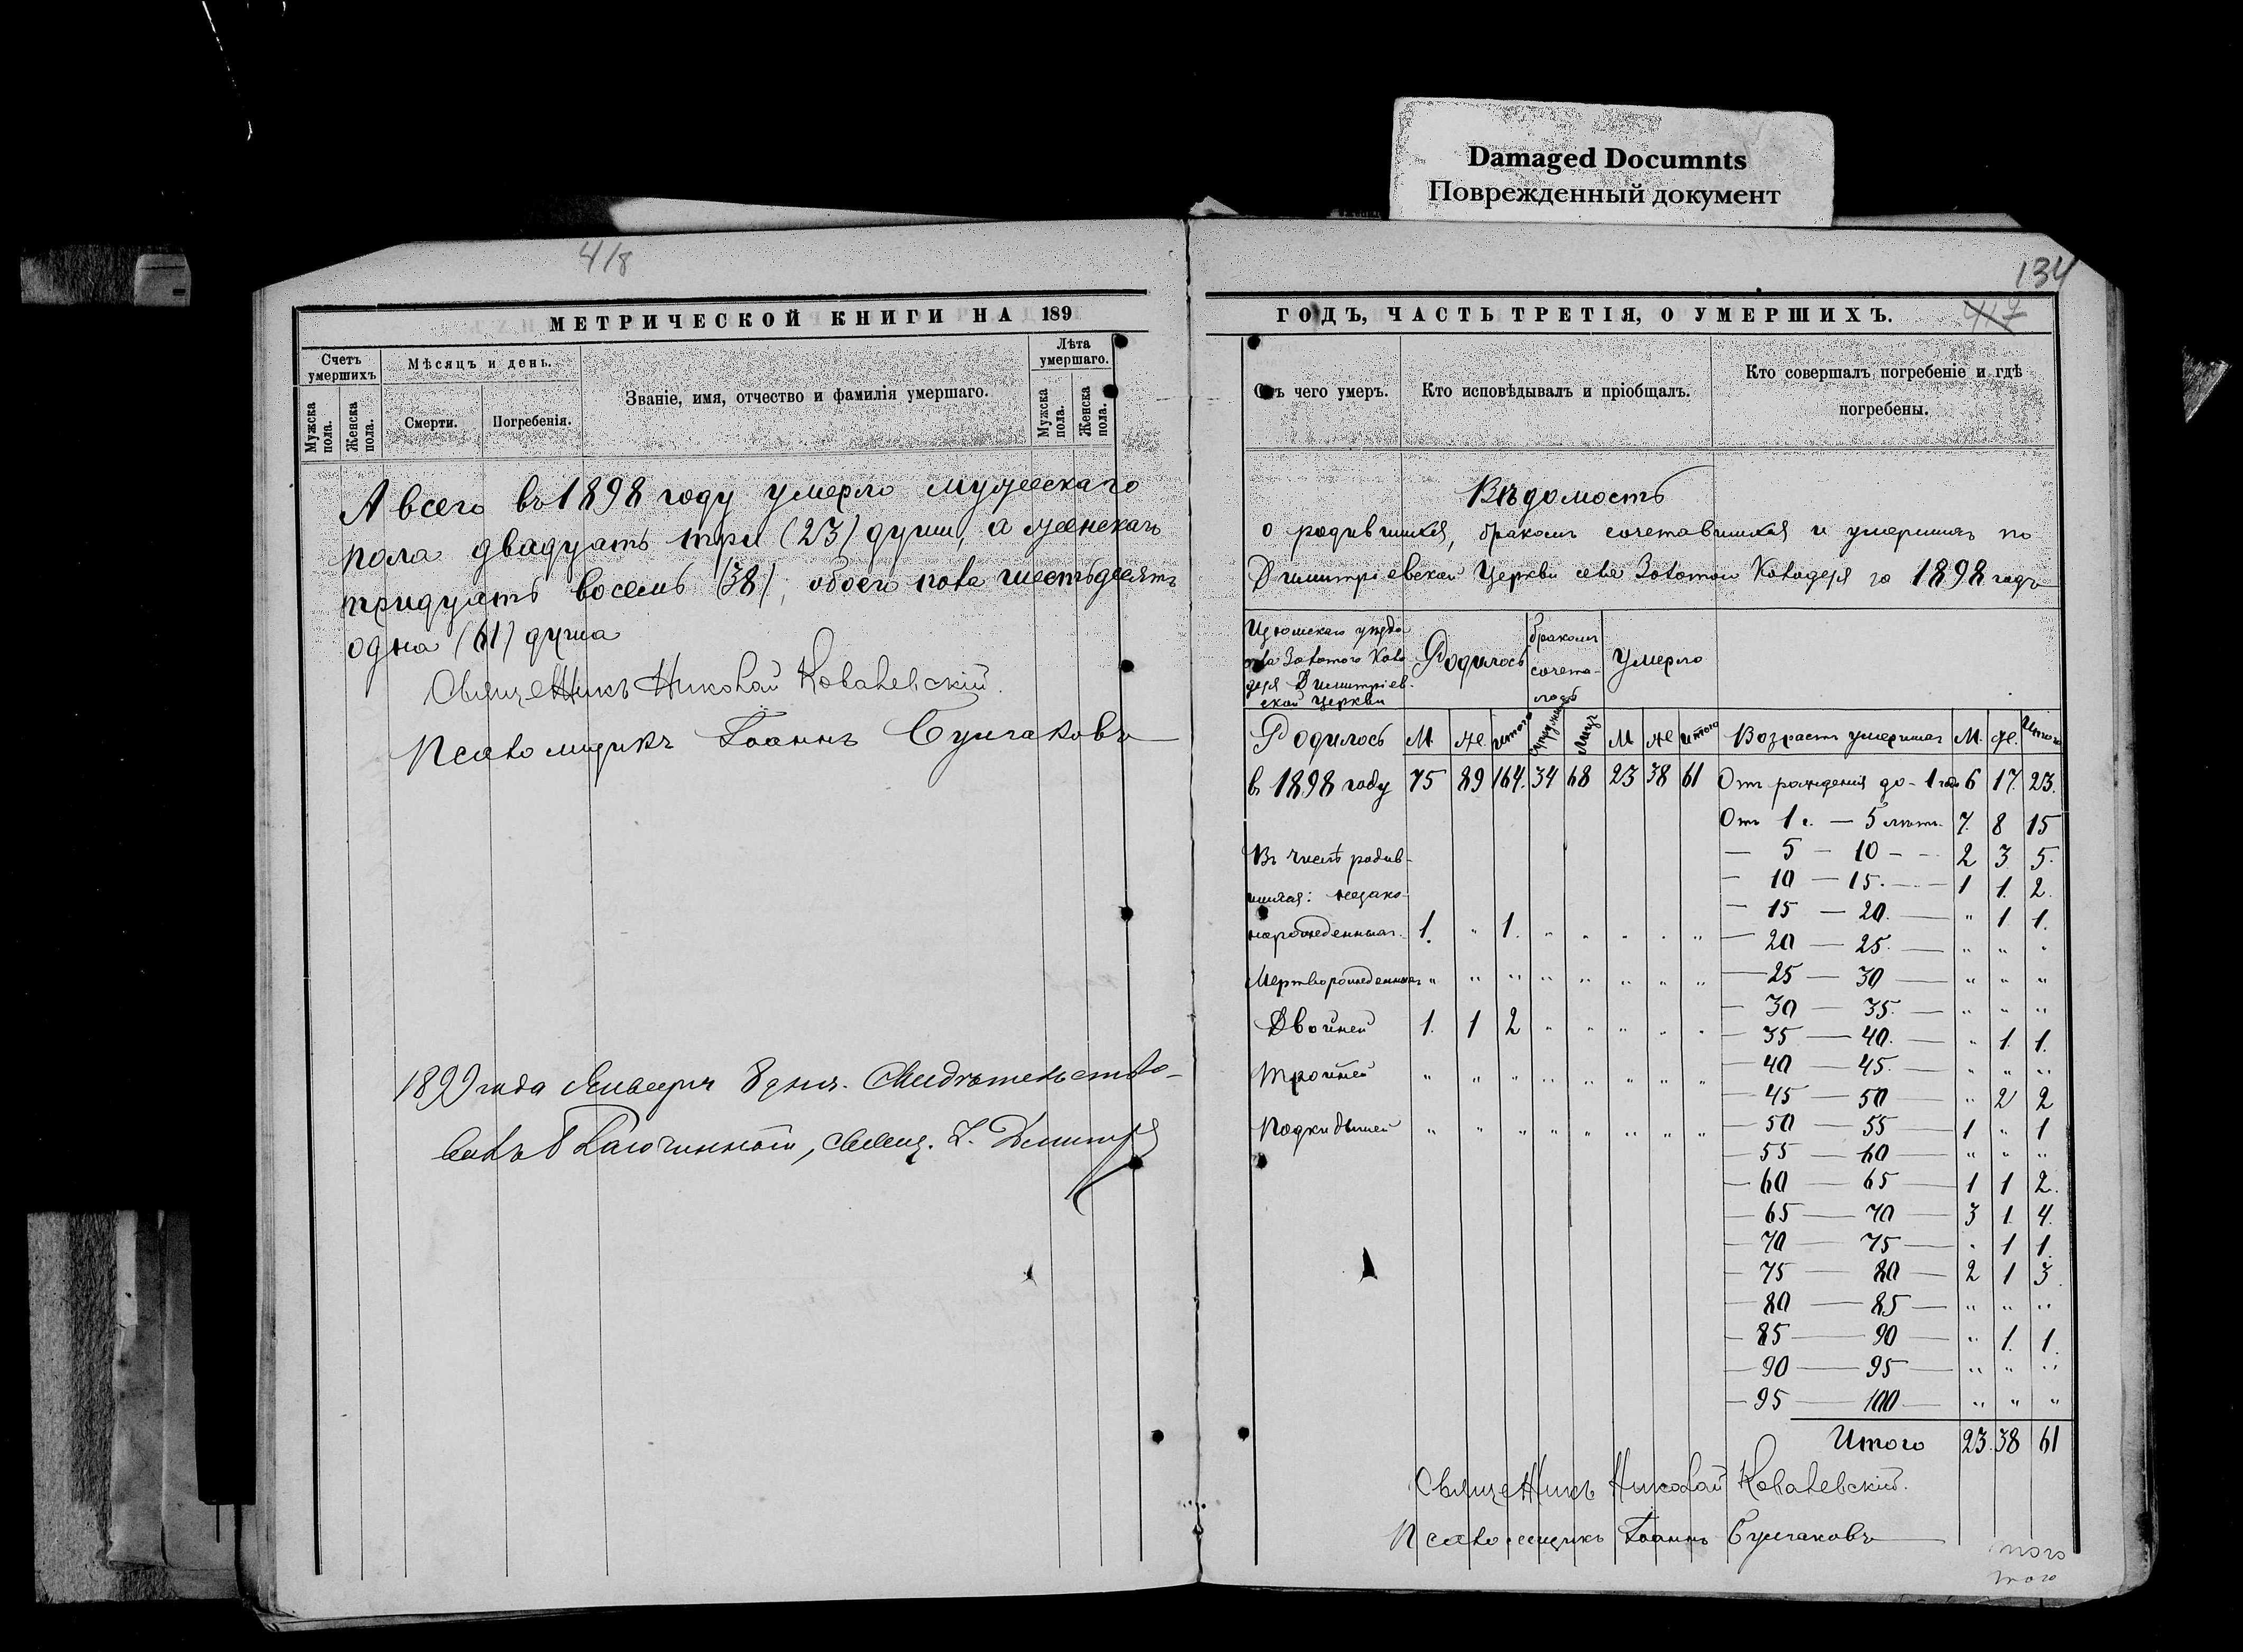 Damaged Documnts
Поврежденный документ
418
134
417
МЕТРИЧЕСКОЙ КНИГИ НА 189
Счетъ умершихъ.
Мужска пола.
Женска пола.
Мѣсяцъ и день.
Смерти.
Погребенія.
Званіе, имя, отчество и фамилія умершаго.
Лѣта умершаго.
Мужска пола.
Женска пола.
А всего въ 1898 году умерло мужескаго
пола двадцать три (23) души, а женскаго
тридцать восемь (38), обоего пола шестьдесятъ
одна (61) душа
Священникъ Николай Ковалевскій.
Псаломщикъ Іоаннъ Булгаковъ
1899 года Января 8 дня. Свидѣтельство-
валъ Благочинный, Свящ.
ГОДЪ, ЧАСТЬ ТРЕТІЯ, О УМЕРШИХЪ.
Отъ чего умеръ.
Кто исповѣдывалъ и пріобщалъ.
Кто совершалъ погребеніе и гдѣ
погребены.
Вѣдомость
о родившихся, бракомъ сочетавшихся и умершихъ по
Димитріевской Церкви села Золотой Колодезя за 1898 годъ
Изюмскаго уѣзда
села Золотого Коло
дезя Димитріев-
ской Церкви
Родилось
бракомъ
сочета-
лось
Умерло
Родилось М. Же. Итого Супружествъ Лицъ М Же Итого Возрастъ умершихъ М. Же. Итого
въ 1898 году 75 89 164. 34 68 23 38 61 Отъ рожденія до - 1 года 6 17. 23.
Отъ 1 г. — 5 лѣтъ. 7. 8 15
Въ числѣ родив- — 5 — 10 — 2 3 5.
шихся: незако- — 10 — 15. — 1 1. 2.
— 15 — 20. — " 1 1.
норожденныхъ. 1. " 1. " " " " " — 20 — 25. — " " "
Мертворожденныхъ " " " " " " " " — 25 — 30 — " " "
— 30 — 35. — " " "
Двойней 1. 1 2 " " " " " — 35 — 40. — " 1. 1.
— 40 — 45. — " " "
Тройней " " " " " " " " — 45 — 50 — " 2 2
Подкидышей " " " " " " " " — 50 — 55 — 1 " 1
— 55 — 60 — " " "
— 60 — 65 — 1 1 2.
— 65 — 70 — 3 1. 4.
— 70 — 75 — " 1 1.
— 75 — 80 — 2 1 3.
— 80 — 85 — " " "
— 85 — 90 — " 1. 1.
— 90 — 95 — " " "
— 95 — 100 — " " "
Итого 23. 38 61
Священникъ Николай Ковалевскій.
Псаломщикъ Іоаннъ Булгаковъ